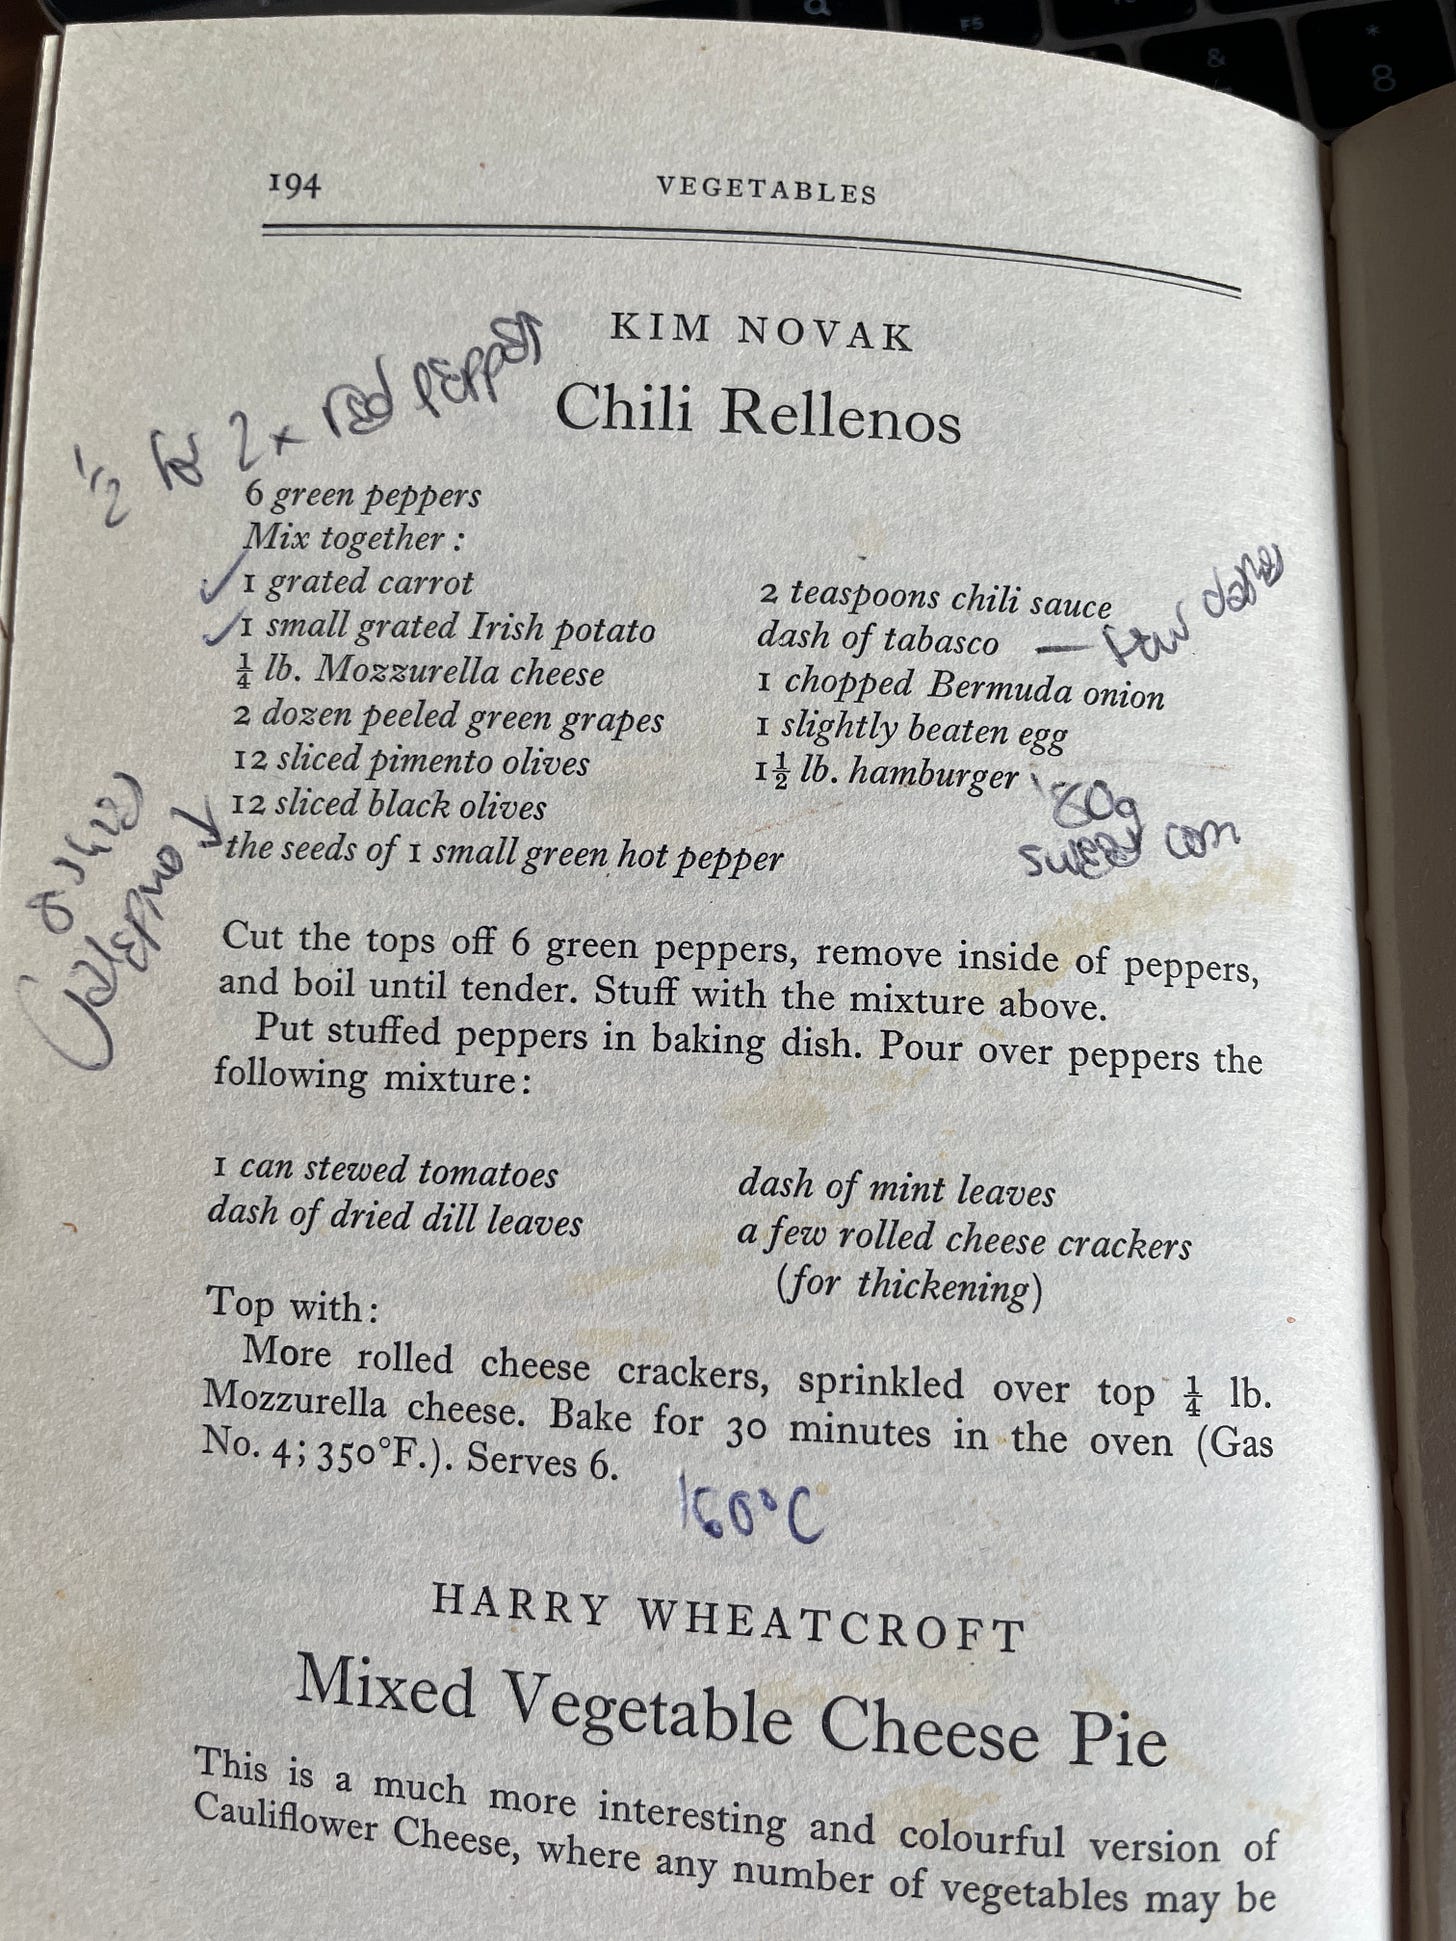 194 VEGETABLES
KIM NOVAK
Chili Rellenos
½ for 2 x red pepper
6 green peppers
Mix together :
1 grated carrot
1 small grated Irish potato
¼ lb. Mozzurella cheese
2 dozen peeled green grapes
12 sliced pimento olives
12 sliced black olives
the seeds of 1 small green hot pepper
2 teaspoons chili sauce
dash of tabasco — few
1 chopped Bermuda onion
1 slightly beaten egg
1½ lb. hamburger
80g
sweet corn
Cut the tops off 6 green peppers, remove inside of peppers,
and boil until tender. Stuff with the mixture above.
Put stuffed peppers in baking dish. Pour over peppers the
following mixture:
1 can stewed tomatoes
dash of dried dill leaves
dash of mint leaves
a few rolled cheese crackers
(for thickening)
Top with:
More rolled cheese crackers, sprinkled over top ¼ lb.
Mozzurella cheese. Bake for 30 minutes in the oven (Gas
No. 4; 350°F.). Serves 6.
160°C
HARRY WHEATCROFT
Mixed Vegetable Cheese Pie
This is a much more interesting and colourful version of
Cauliflower Cheese, where any number of vegetables may be
F5
&
*
8